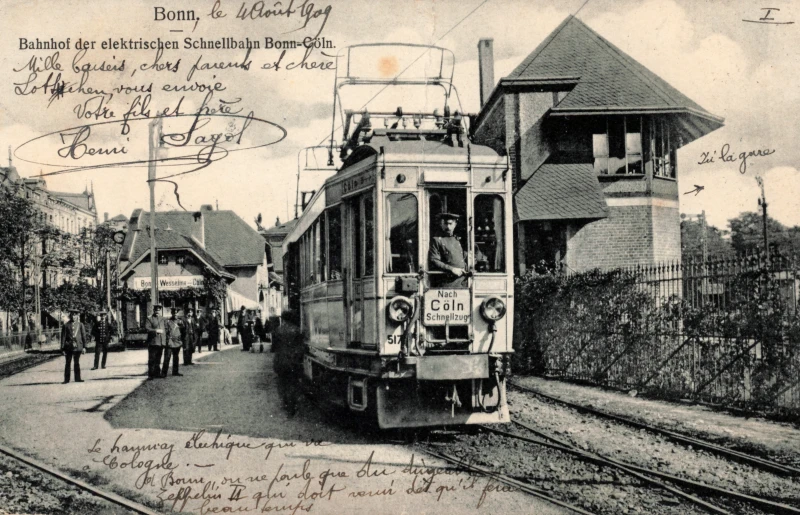 Bonn, le 4 Août 1909
I
Bahnhof der elektrischen Schnellbahn Bonn-Cöln.
Mille baiseis, chers parents et chère
que vous envoie
Votre fils et frère
Henri
Ici la gare
Cöln
Bonn Wesseling-Cöln
Nach
Cöln
Schnellzug
517
Le tramway électrique qui va
à Cologne. —
A Bonn, on ne parle que du dirigeable
Zeppelin II qui doit venir dès qu'il fera
beau temps